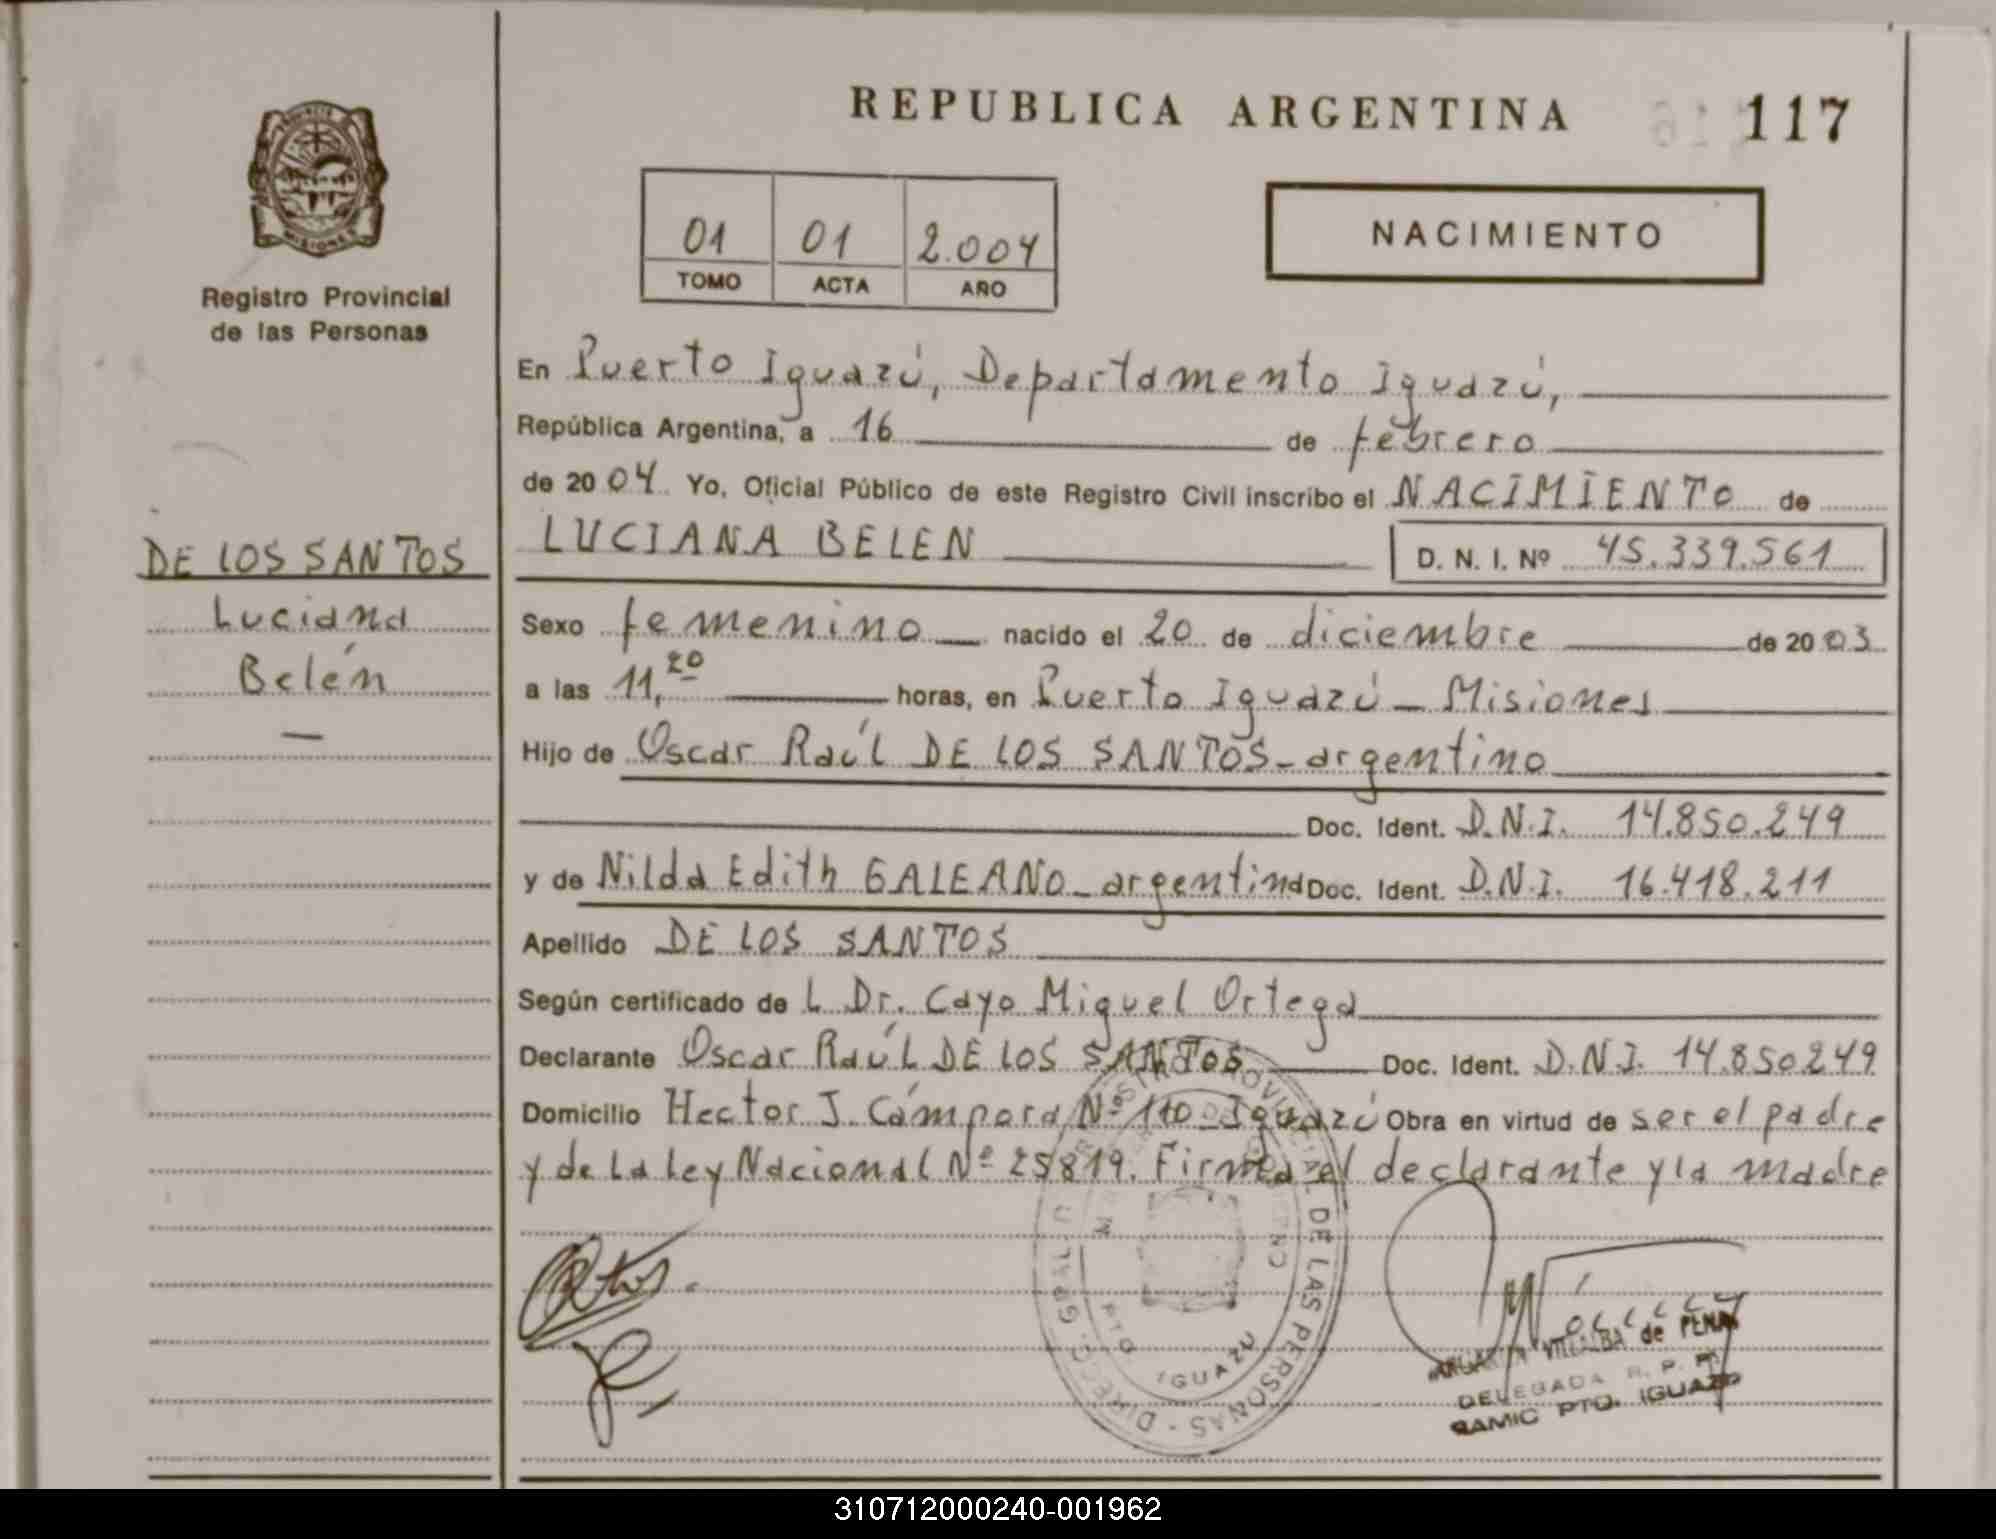 REPUBLICA ARGENTINA 117
NACIMIENTO
01 01 2.004
TOMO ACTA AÑO
MISIONES
Registro Provincial
de las Personas
DE LOS SANTOS
Luciana
Belén
—
En Puerto Iguazú, Departamento Iguazú,
República Argentina, a 16 de febrero
de 2004 Yo, Oficial Público de este Registro Civil inscribo el NACIMIENTO de
LUCIANA BELEN D. N. I. Nº 45.339.561
Sexo femenino nacido el 20 de diciembre de 2003
a las 11,20 horas, en Puerto Iguazú - Misiones
Hijo de Oscar Raúl DE LOS SANTOS - argentino
Doc. Ident. D.N.I. 14.850.249
y de Nilda Edith GALEANO - argentina Doc. Ident. D.N.I. 16.418.211
Apellido DE LOS SANTOS
Según certificado de L Dr. Cayo Miguel Ortega
Declarante Oscar Raúl DE LOS SANTOS Doc. Ident. D.N.I. 14.850249
Domicilio Hector J. Cámpora Nº 110 - Iguazú Obra en virtud de ser el padre
y de La Ley Nacional Nº 25819. Firma el declarante y la madre
DE LAS PERSONAS - DIRECC. GRAL.
PTO. IGUAZU
VILLALBA de PENA
DELEGADA R. P. P.
SAMIC PTO. IGUAZU
310712000240-001962